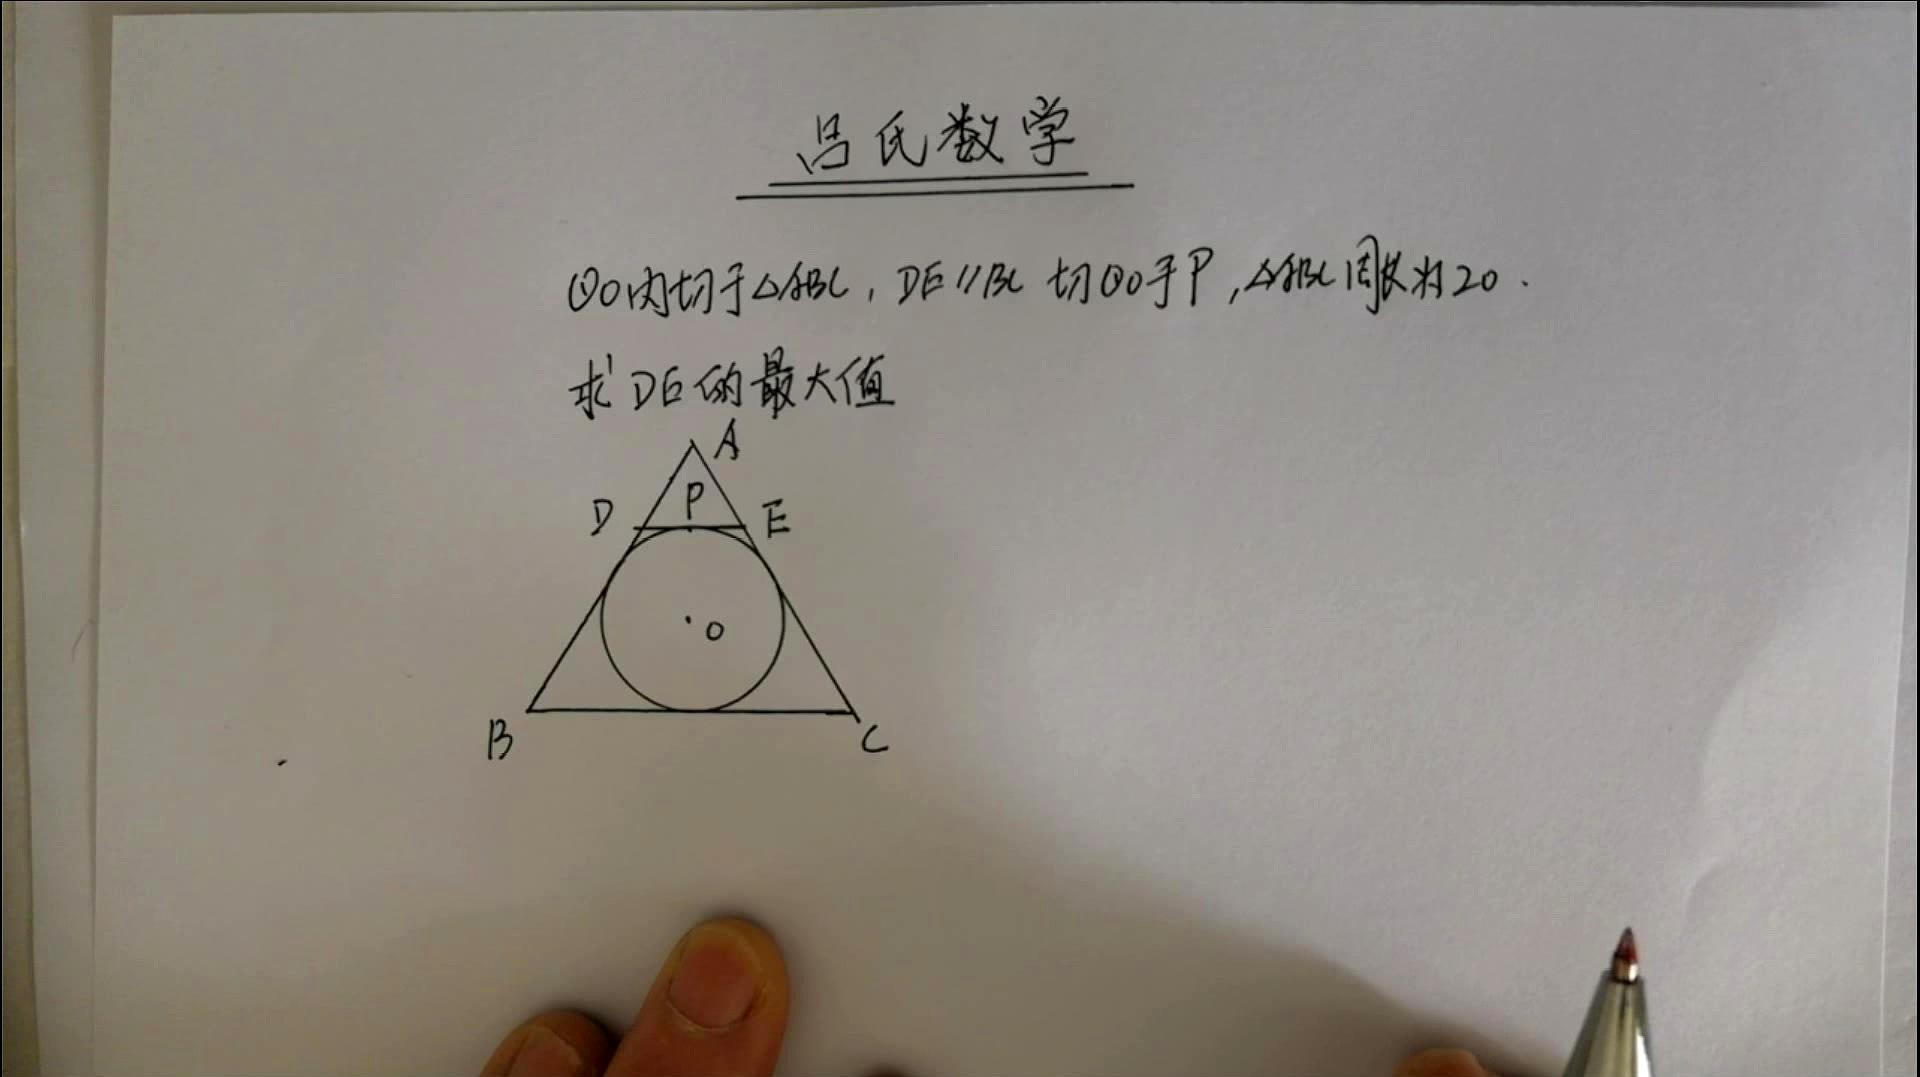 吕氏数学
⊙O内切于△ABC,DE∥BC 切⊙O于P,△ABC周长为20.
求DE的最大值
A
P
D E
O
B C